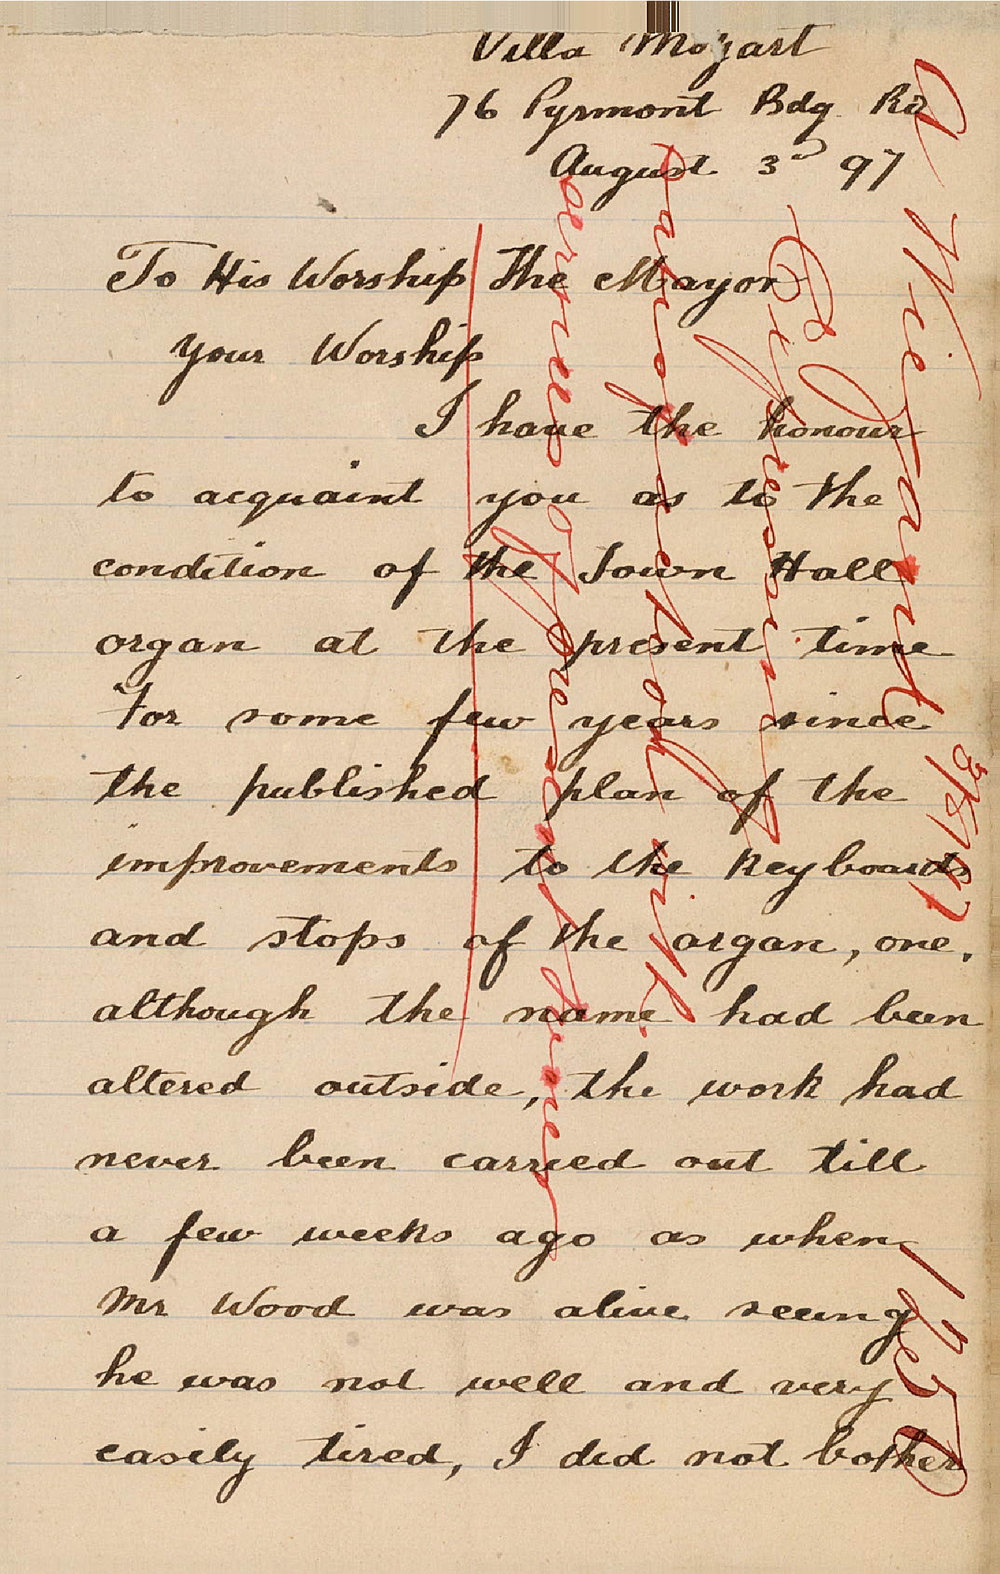 Villa Mozart
76 Pyrmont Bdg Rd
August 3rd 97
To His Worship The Mayor
Your Worship
I have the honour
to acquaint you as to the
condition of the Town Hall
organ at the present time
For some few years since
the published plan of the
improvements to the keyboards
and stops of the organ, one.
although the name had been
altered outside, the work had
never been carried out till
a few weeks ago as when
Mr Wood was alive seeing
he was not well and very
easily tired, I did not bother
A Wiegand 3/8/97
Expressing
satisfaction with
services of present tuner